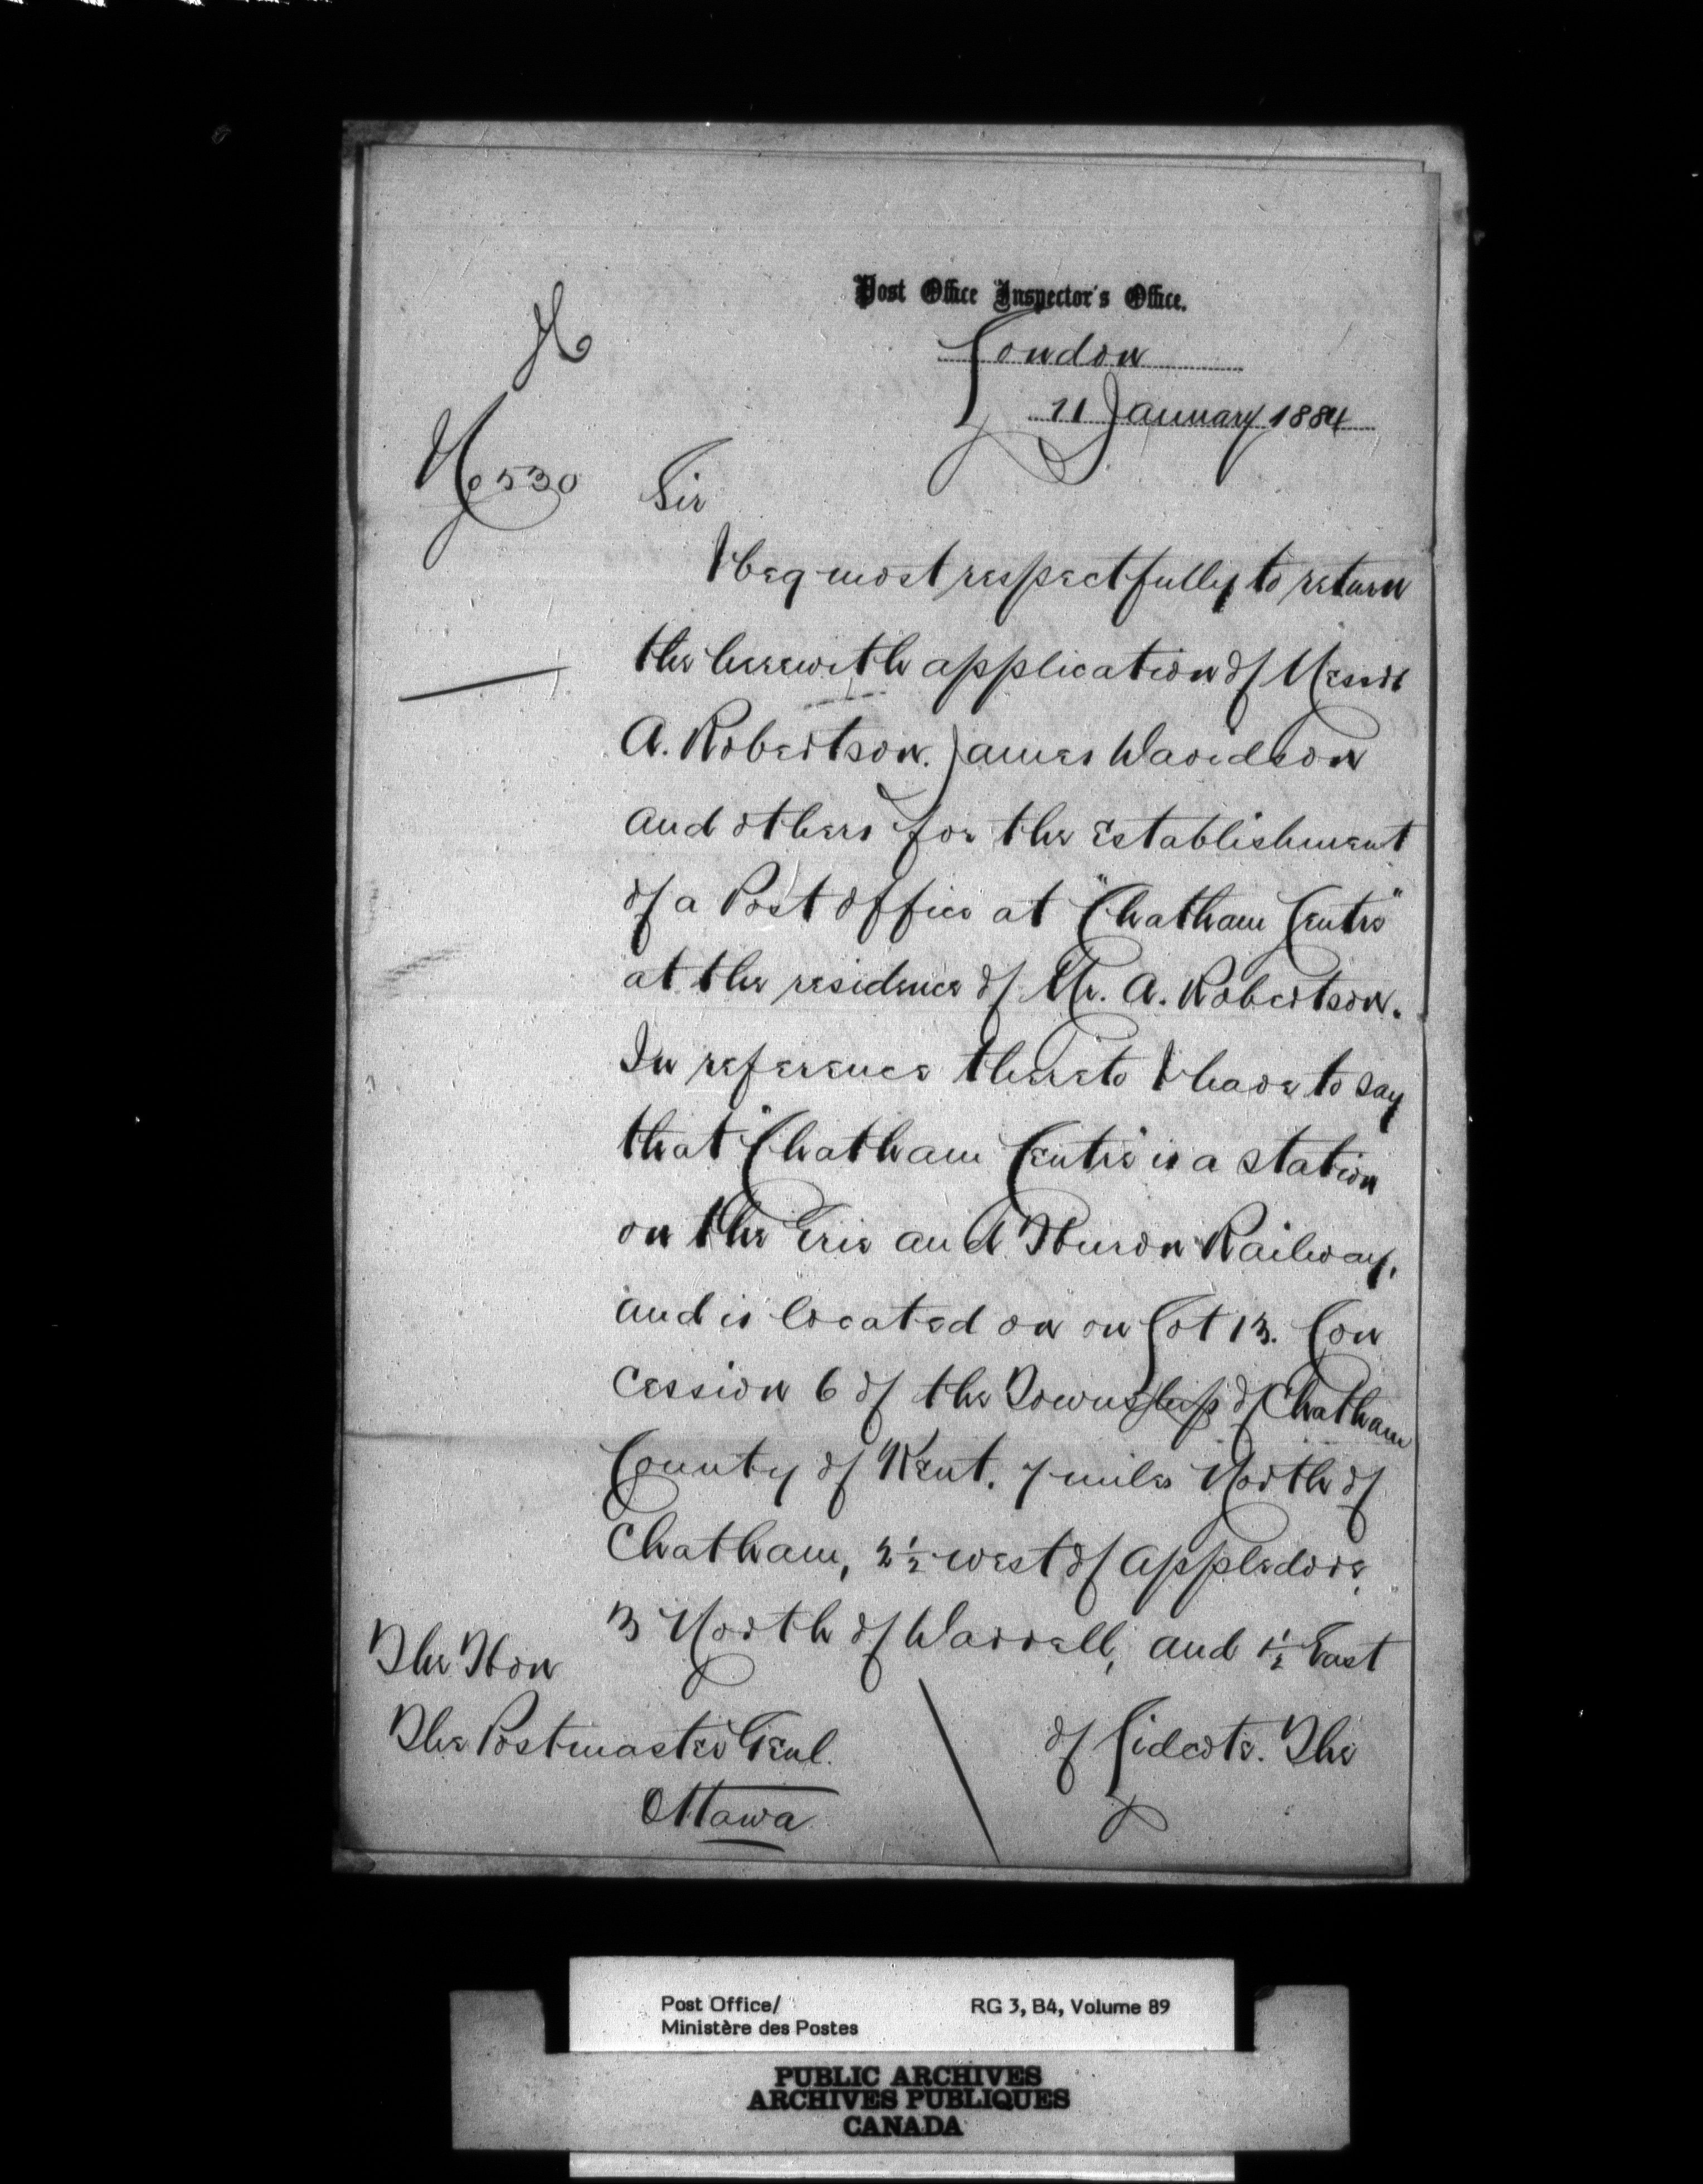 Post Office Inspector's Office.
London
11 January 1884
H
No 530
Sir
I beg most respectfully to return
the herewith application of Messrs
A. Robertson. James Davidson
and others for the Establishment
of a Post Office at "Chatham Centre"
at the residence of Mr. A. Robertson.
In reference thereto I have to say
that "Chatham Centre" is a station
on the Erie and Huron Railway,
and is located on on Lot 13. Con
cession 6 of the Township of Chatham
County of Kent. 7 miles North of
Chatham, 2½ west of Appledore,
3 North of Darrell, and 1½ East
of Lidcote. The
The Hon
The Postmaster Genl.
Ottawa
Post Office/
Ministère des Postes
RG 3, B4, Volume 89
PUBLIC ARCHIVES
ARCHIVES PUBLIQUES
CANADA